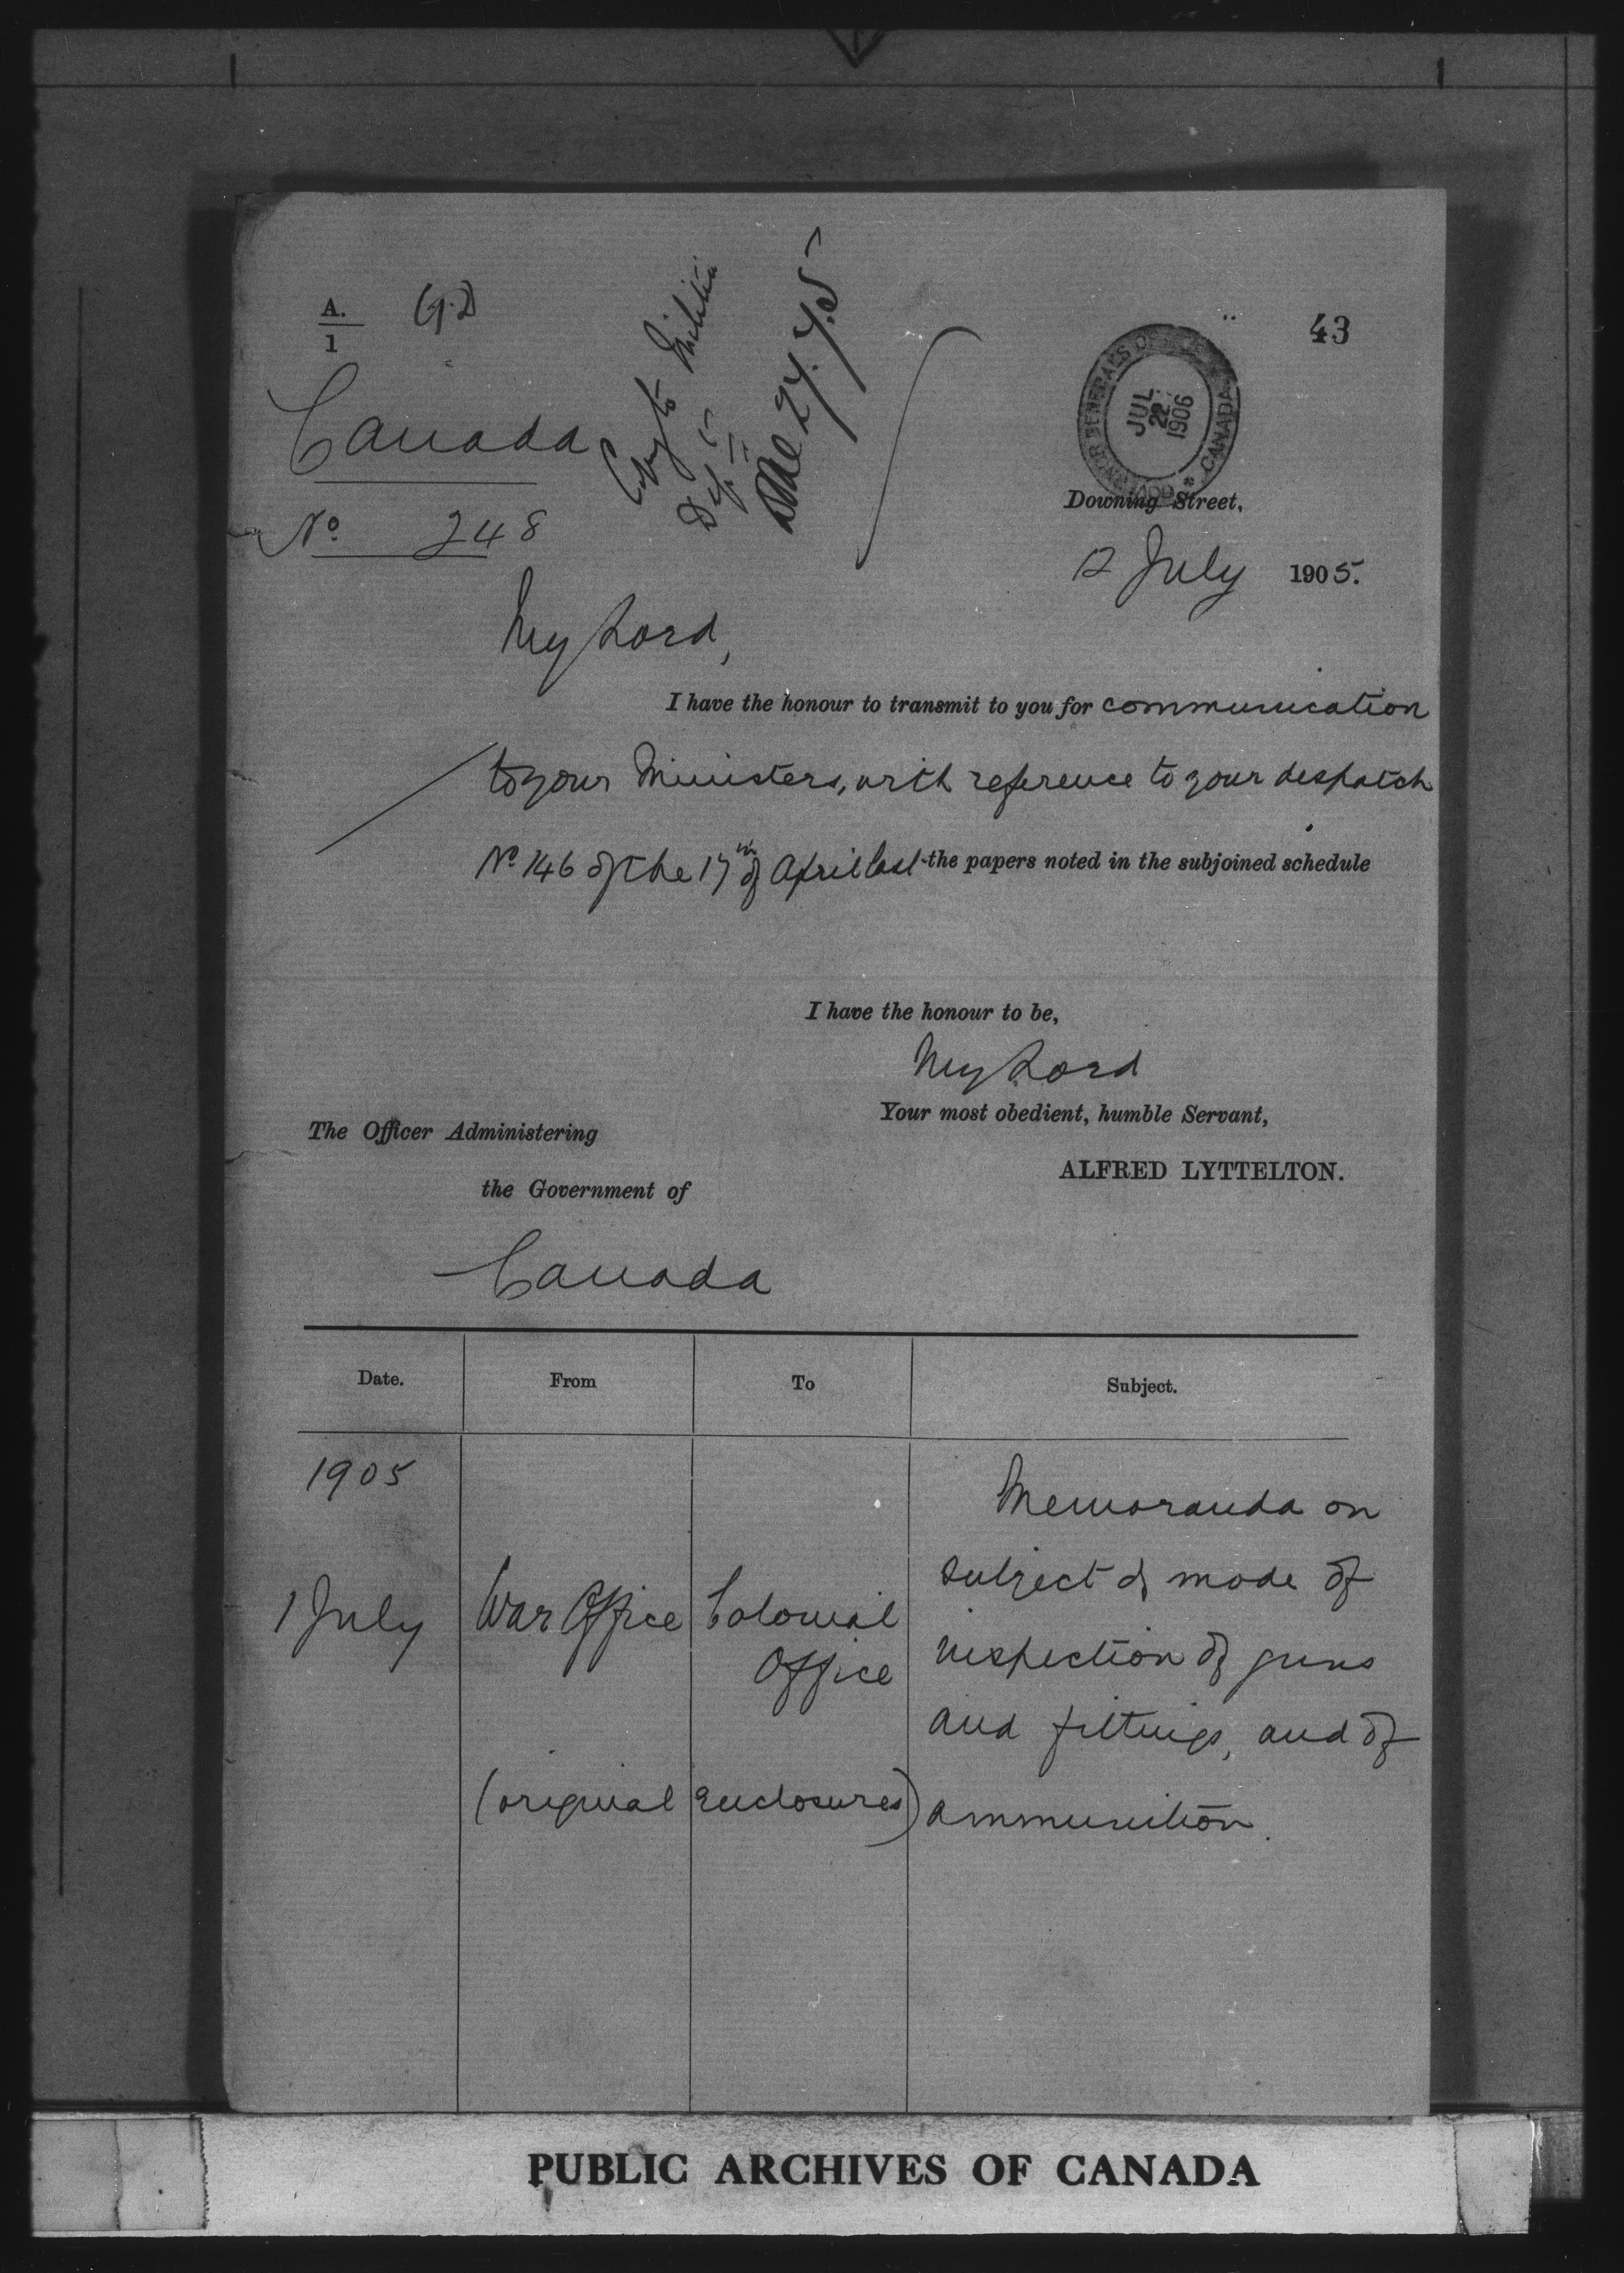 A.
1
Canada
No 248
Copy to Militia
24.7.5
43
GOVERNOR GENERALS OFFICE
CANADA
JUL
22
1906
Downing Street,
12 July 1905.
My Lord,
I have the honour to transmit to you for communication
to your Ministers, with reference to your despatch
No 146 of the 17th of April last the papers noted in the subjoined schedule
I have the honour to be,
My Lord
Your most obedient, humble Servant,
ALFRED LYTTELTON.
The Officer Administering
the Government of
Canada
Date. From To Subject.
1905
1 July War Office Colonial
Office
(original enclosures)
Memoranda on
subject of mode of
inspection of guns
and fittings, and of
ammunition.
PUBLIC ARCHIVES OF CANADA